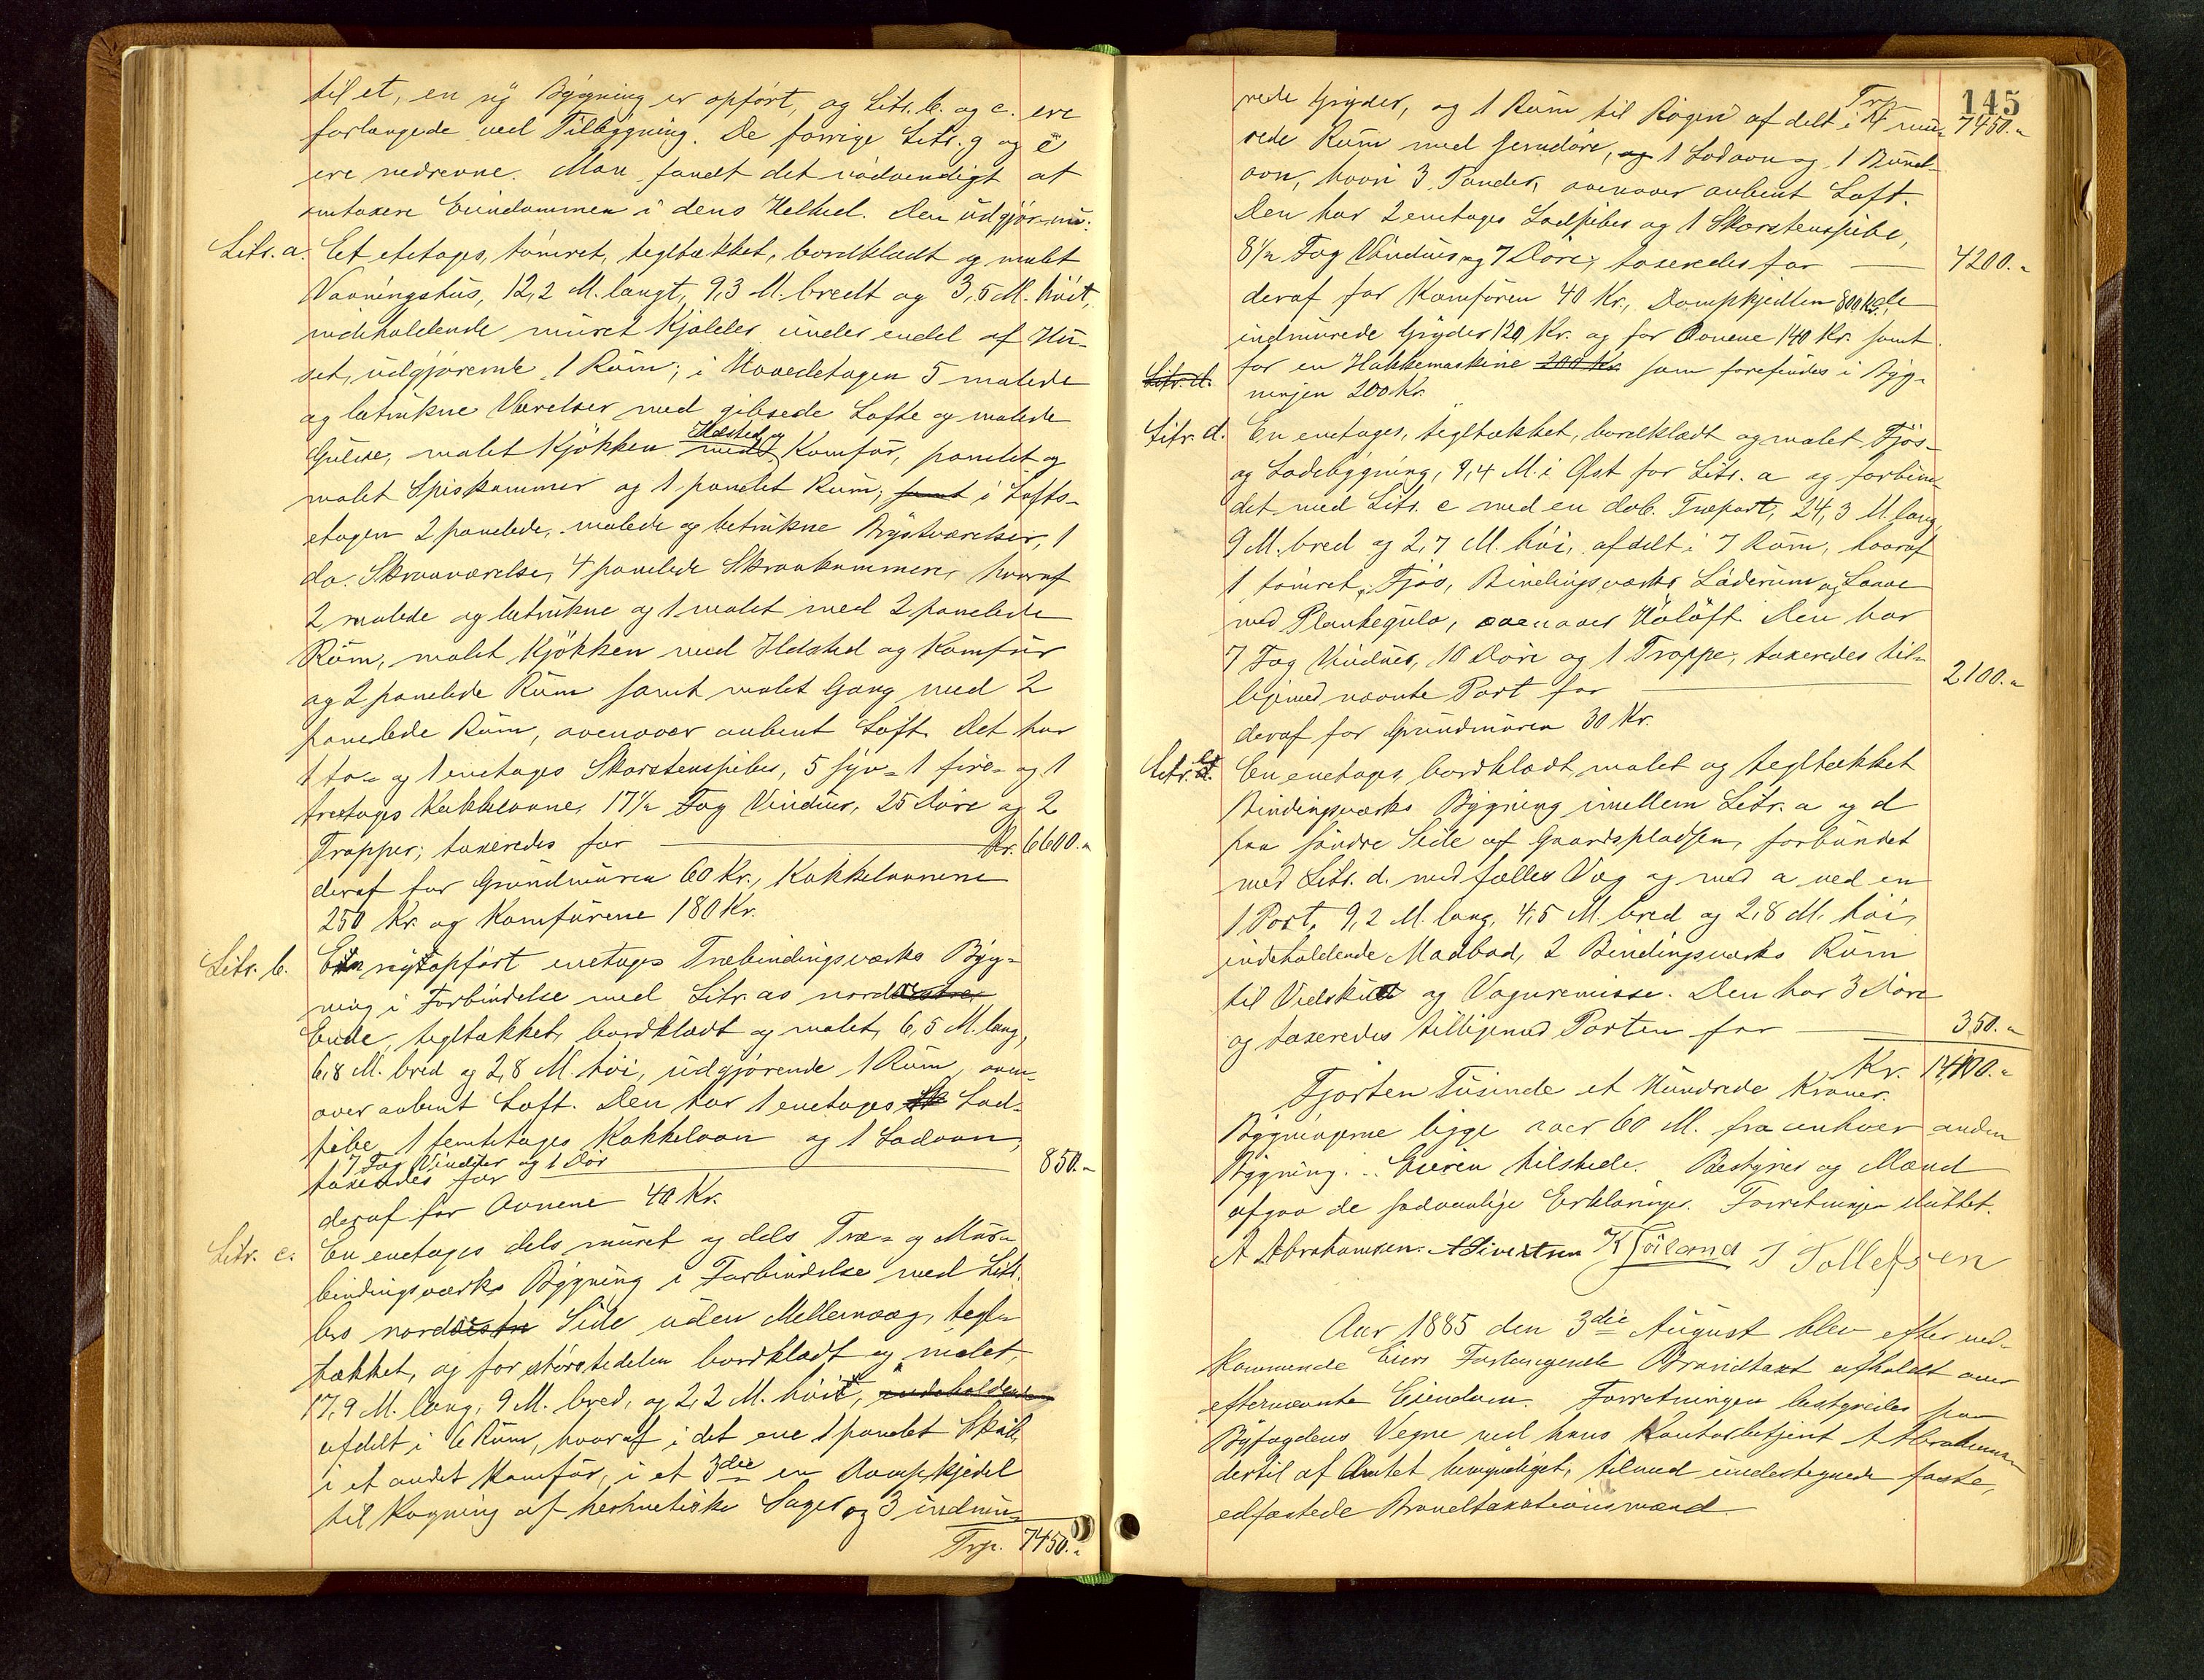 til et, en ny Bygning er opført, og Litr. b. og c. ere
forlængede ved Tilbygning. De forrige Litr. g og e
ere nedrevne. Man fandt det nødvendigt at
omtaxere Eiendommen i dens Helhed. Den udgjør nu:
Litr. a. Et etetages, tømret, tegltækket, bordklædt og malet
Vaaningshus, 12,2 M. langt, 9,3 M. bredt og 3,5 M. høit,
indeholdende muret Kjælder under endel af Hu-
set, udgjørende 1 Rum; i Hovedetagen 5 malede
og betrukne Værelser med gibsede Lofte og malede
Gulve, malet Kjøkken med Ildsted og Komfur, panelet og
malet Spiskammer og 1 panelet Rum; samt i Lofts-
etagen 2 panelede, malede og betrukne Kvistværelser, 1
do. Skraaværelse, 4 panelede Skraakammere, hvoraf
2 malede og betrukne og 1 malet med 2 panelede
Rum, malet Kjøkken med Ildsted og Komfur
og 2 panelede Rum samt malet Gang med 2
panelede Rum, ovenover aabent Loft. Det har
1 to- og 1 enetages Skorstenspiber, 5 syv- 1 fire- og 1
treetages Kakkelovne, 17½ Fag Vinduer, 25 Døre og 2
Trapper; taxeredes for Kr. 6600.-
deraf for Grundmuren 60 Kr., Kakkelovnene
250 Kr. og Komfurene 180 Kr.
Litr. b. En nyopført enetages Træbindingsværks Byg-
ning i Forbindelse med Litr. as nordøstre
Ende, tegltækket, bordklædt og malet, 6,5 M. lang,
6,8 M. bred og 2,8 M. høi, udgjørende 1 Rum, oven-
over aabent Loft. Den har 1 enetages Lod-
pibe, 1 femtetages Kakkelovn og 1 Lodovn,
7 Fag Vinduer og 1 Dør
taxeredes for 850.-
deraf for Ovnene 40 Kr.
Litr. c. En enetages dels muret og dels Træ- og Mur-
bindingsværks Bygning i Forbindelse med Litr.
bs nordøstre Side uden Mellemvæg, tegl-
tækket, og for størstedelen bordklædt og malet,
17,9 M. lang, 9 M. bred, og 2,2 M. høi, indeholdende
afdelt i 6 Rum, hvoraf i det ene 1 panelet Skab,
i et andet Komfur, i et 3die en Dampkjedel
til Kogning af hermetiske Sager og 3 indmu-
Trp. 7450.-
145
Trp. 7450.-
rede Gryder, og 1 Rum til Røgeri afdelt i 4 mu-
rede Rum med Jerndøre, og 1 Lodovn og 1 Bund-
ovn, hvori 3 Pander, ovenover aabent Loft.
Den har 2 enetages Lodpiber og 1 Skorstenspibe,
8½ Fag Vinduer og 7 Døre; taxeredes for 4200.-
deraf for Komfuren 40 Kr., Dampkjedlen 800 Kr., de
indmurede Gryder 120 Kr. og for Ovnene 140 Kr. samt
Litr. d. for en Hakkemaskine 200 Kr. som forefindes i Byg-
ningen 200 Kr.
Litr. d. En enetages, tegltækket, bordklædt og malet Fjøs-
og Ladebygning, 9,4 M. i Øst for Litr. a og forbun-
det med Litr. c med en dob. Træport, 24,3 M. lang,
9 M. bred og 2,7 M. høi, afdelt i 7 Rum, hvoraf
1 tømret Fjøs, Bindingsværks Laderum og Laave
med Plankegulv, ovenover Høloft. Den har
7 Fag Vinduer, 10 Døre og 1 Trappe; taxeredes til-
ligemed nævnte Port for 2100.-
deraf for Grundmuren 30 Kr.
Litr. e. En enetages bordklædt, malet og tegltækket
Bindingsværks Bygning imellem Litr. a og d
paa søndre Side af Gaardspladsen, forbundet
med Litr. d. med fælles Væg og med a ved en
1 Port, 9,2 M. lang, 4,5 M. bred og 2,8 M. høi,
indeholdende Madbod, 2 Bindingsværks Rum
til Vedskud og Vognremisse. Den har 3 Døre
og taxeredes tilligemed Porten for 350.-
Kr. 14100.-
Fjorten Tusinde et Hundrede Kroner.
Bygningerne ligge over 60 M. fra enhver anden
Bygning. Eieren tilstede. Bestyrer og Mænd
afgav de sædvanlige Erklæringer. Forretningen sluttet.
A Abrahamsen. A Sivertsen K Høiland J Tollefsen
Aar 1885 den 3die August blev efter ved-
kommende Eiers Forlangende Brandtaxt afholdt over
efternævnte Eiendom. Forretningen bestyredes paa
Byfogdens Vegne ved hans Kontorbetjent A Abrahamsen
dertil af Amtet bemyndiget, tilmed undertegnede faste,
edfæstede Brandtaxationsmænd.